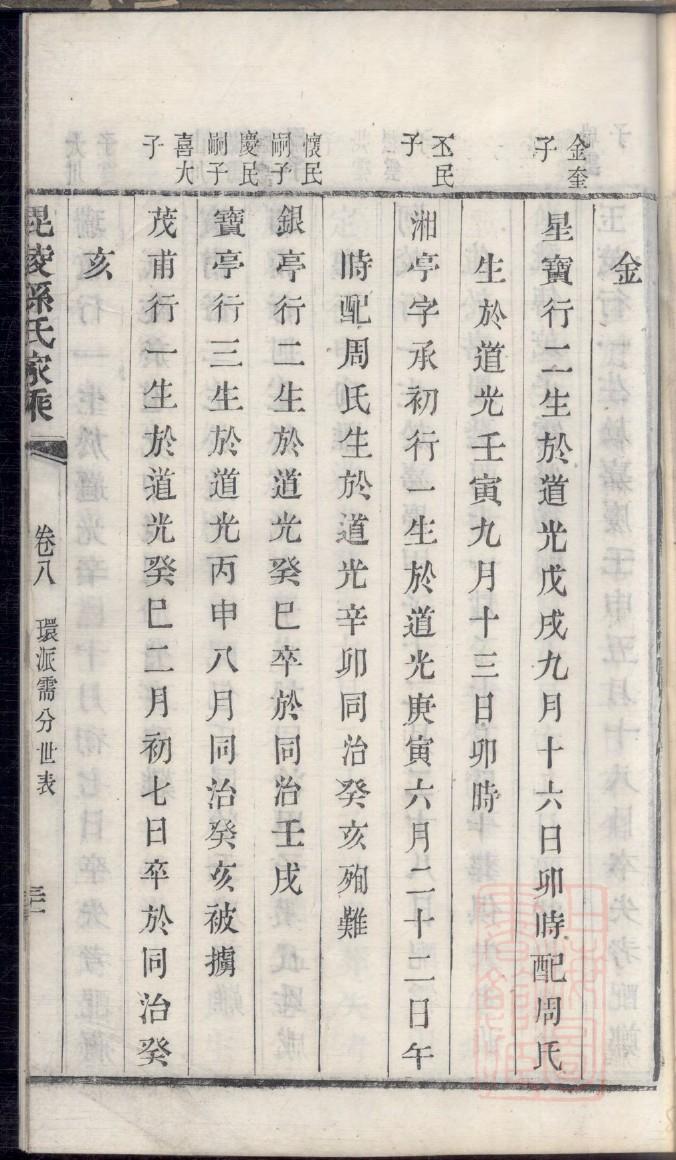 金
金奎子
星寶行二生於道光戊戌九月十六日卯時配周氏
生於道光壬寅九月十三日卯時
丕民子
湘亭字承初行一生於道光庚寅六月二十二日午
時配周氏生於道光辛卯同治癸亥殉難
懷民嗣子
銀亭行二生於道光癸巳卒於同治壬戌
慶民嗣子
寶亭行三生於道光丙申八月同治癸亥被擄
喜大子
茂甫行一生於道光癸巳二月初七日卒於同治癸
亥
毘陵孫氏家乘
卷八 環派需分世表